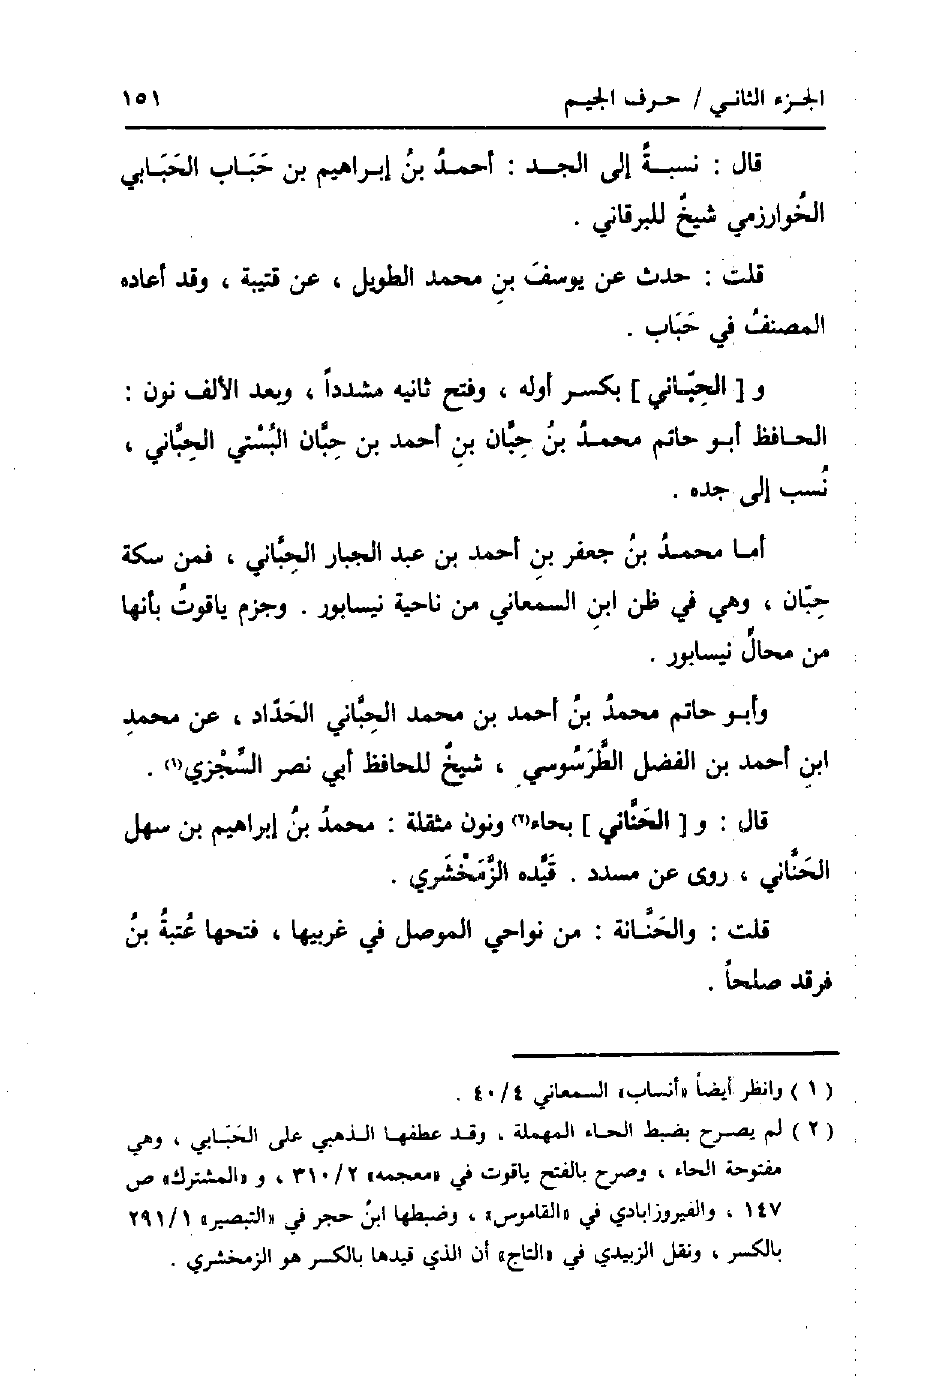 الجزء الثاني / حرف الجيم ١٥١
قال : نسبةً إلى الجد : أحمدُ بنُ إبراهيم بن حَبَاب الحَبَابي
الخُوارزمي شيخٌ للبرقاني .
قلت : حدث عن يوسفَ بنِ محمد الطويل ، عن قتيبة ، وقد أعاده
المصنفُ في حَبَاب .
و [ الحِبّاني ] بكسر أوله ، وفتح ثانيه مشدداً ، وبعد الألف نون :
الحافظ أبو حاتم محمدُ بنُ حِبَّان بنِ أحمد بن حِبَّان البُسْتي الحِبَّاني ،
نُسب إلى جده .
أما محمدُ بنُ جعفر بنِ أحمد بن عبد الجبار الحِبَّاني ، فمن سكة
حِبّان ، وهي في ظن ابنِ السمعاني من ناحية نيسابور . وجزم ياقوتُ بأنها
من محالِّ نيسابور .
وأبو حاتم محمدُ بنُ أحمد بن محمد الحِبَّاني الحَدّاد ، عن محمدِ
ابنِ أحمد بن الفضل الطَّرَسُوسي ، شيخٌ للحافظ أبي نصر السِّجْزي(١) .
قال : و [ الحَنَّاني ] بحاء(٢) ونون مثقلة : محمدُ بنُ إبراهيم بن سهل
الحَنَّاني ، روى عن مسدد . قَيَّده الزَّمَخْشَري .
قلت : والحَنَّانة : من نواحي الموصل في غربيها ، فتحها عُتبةُ بنُ
فرقد صلحاً .
( ١ ) وانظر أيضاً «أنساب» السمعاني ٤٠/٤ .
( ٢ ) لم يصرح بضبط الحاء المهملة ، وقد عطفها الذهبي على الحَبَابي ، وهي
مفتوحة الحاء ، وصرح بالفتح ياقوت في «معجمه» ٣١٠/٢ ، و «المشترك» ص
١٤٧ ، والفيروزابادي في «القاموس» ، وضبطها ابنُ حجر في «التبصير» ٢٩١/١
بالكسر ، ونقل الزبيدي في «التاج» أن الذي قيدها بالكسر هو الزمخشري .